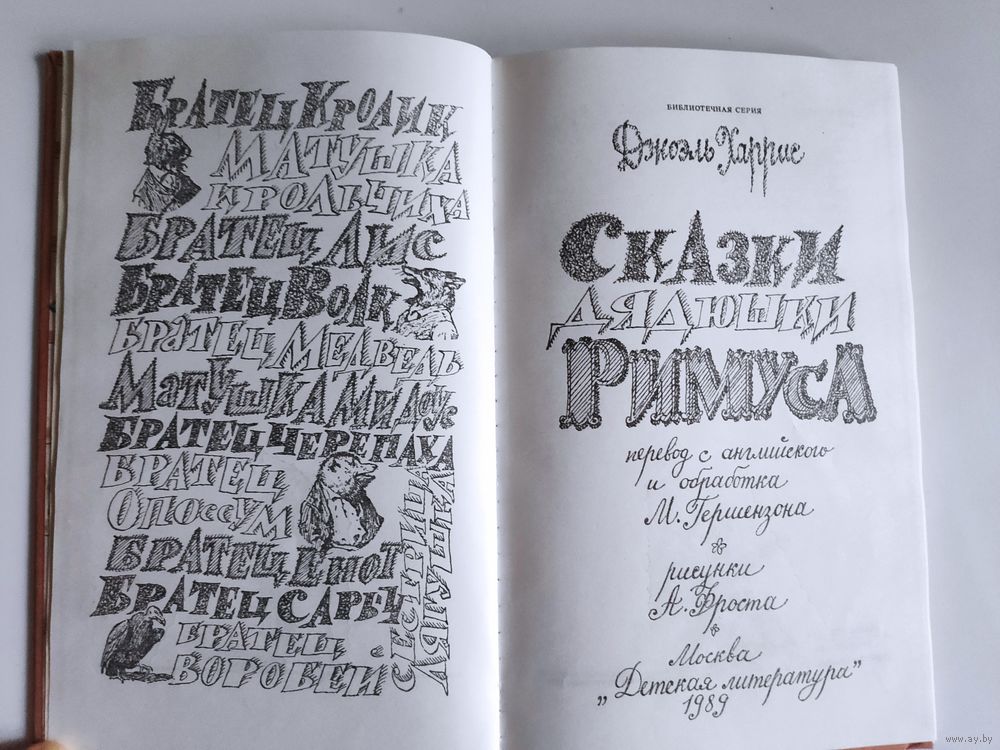 Братец Кролик
Матушка
Крольчиха
Братец Лис
Братец Волк
Братец Медведь
Матушка Мидоус
Братец Черепаха
Братец
Опоссум
Братец Енот
Братец Сарыч
Братец
Воробей
Сестрица
Лягушка
БИБЛИОТЕЧНАЯ СЕРИЯ
Джоэль Харрис
Сказки
дядюшки
Римуса
перевод с английского
и обработка
М. Гершензона
рисунки
А. Фроста
Москва
„Детская литература”
1989
www.ay.by